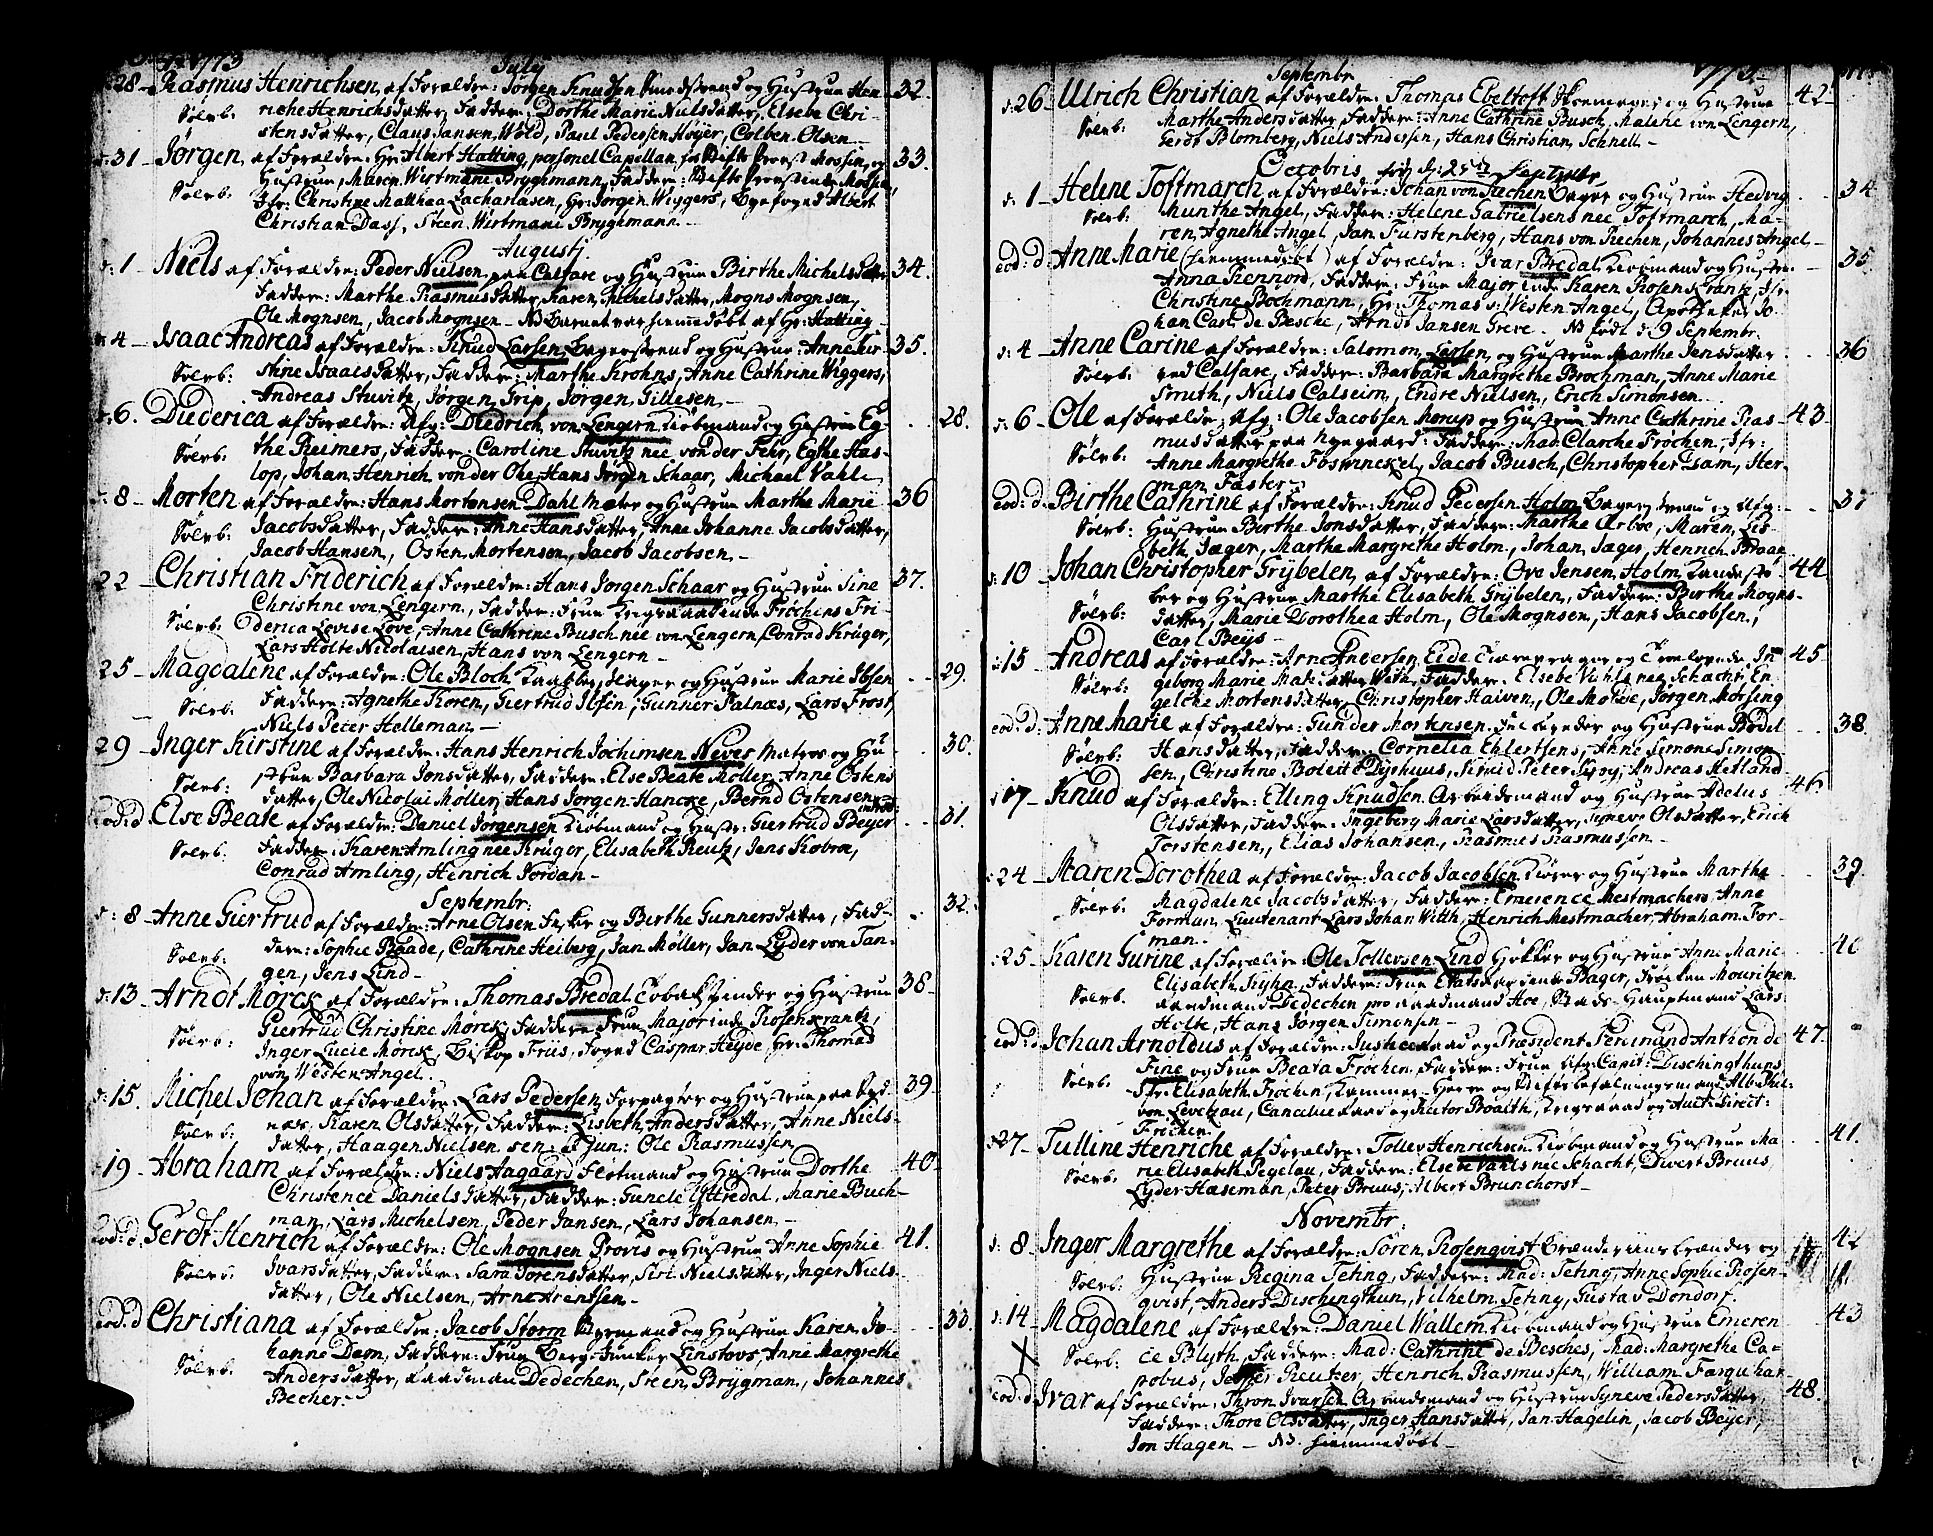 1773 July
28 Rasmus Henrichsen, af Forældre: Jørgen Knudsen og Hustrue Hen- 32.
Sølvb: riche Henrichsdatter, Faddere: Dorthe Marie Nielsdatter, Elsebe Chri-
stensdatter, Claus Jansen Wold, Paul Pedersen Høyer, Colben Olsen
d: 31 Jørgen, af Forældre: Hr: Albert Hatting, personel Capellan og 33.
Sølvb: Hustrue, Maren Wirtmane Bryghmann, Faddere:
Jfr: Christine Matthea Zachariasen, Hr: Jørgen Wiggers, Byefoged Albert
Christian Dass, Steen Wirtmane Bryghmann
Augustj
d: 1 Niels af Forældre: Peder Nielsen paa Calfare og Hustrue Birthe Michelsdatter 34.
Faddere: Marthe Rasmusdatter, Karen Michelsdatter, Mogns Mognsen,
Ole Mognsen, Jacob Mognsen NB Barnet var hiemmedøbt af Hr: Hatting
4 Isaac Andreas af Forældre: Knud Larsen og Hustrue: Anne Kir- 35.
Sølvb: stine Isaacsdatter, Faddere: Marthe Krohns, Anne Cathrine Wiggers,
Andreas Stuvitz, Jørgen Grip, Jørgen Gillesen
6. Diederica af Forældre: Afg: Diedrich von Lengern Kiøbmand og Hustrue Eg- 28.
Sølvb: the Reimers, Faddere: Caroline Stuvitz née von der Fehr, Egthe Has-
lop, Johan Henrich von der Ohe, Hans Jørgen Schaar, Michael Vahl
8 Morten af Forældre: Hans Mortensen Dahl og Hustrue Marthe Marie 36
Sølvb: Jacobsdatter, Faddere: Anne Hansdatter, Anne Johanne Jacobsdatter,
Jacob Hansen, Osten Mortensen, Jacob Jacobsen
22 Christian Friderich af Forældre: Hans Jørgen Schaar og Hustrue Sine 37.
Christine von Lengern, Faddere: Frue Krigsraadinde Frøchens Fri-
Sølvb: derica Levise Love, Anne Cathrine Busch née von Lengern, Conrad Krüger,
Lars Holte Nicolaisen, Hans von Lengern
25 Magdalene af Forældre: Ole Bloch og Hustrue Marie Ibsen 29.
Sølvb: Faddere: Agnethe Koren, Giertrud Ilsen, Gunner Falnæs, Lars Frost,
Niels Peter Helleman
29 Inger Kirstine af Forældre: Hans Henrich Jochimsen Never Matros og Hu- 30.
Sølvb: strue Barbara Jonsdatter, Faddere: Else Beate Møller, Anne Ostens
datter, Ole Nicolai Møller, Hans Jørgen Hancke, Bernd Ostensen
eod: d Else Beate af Forældre: Daniel Jørgensen Kiøbmand og Hustr: Giertrud Beyer 31.
Sølvb. Faddere: Karen Amling née Krüger, Elisabeth Reutz, Jens Kobroe,
Conrad Amling, Henrich Jordan
Septembr:
d: 8 Anne Giertrud af Forældre: Arne Olsen og Birthe Gunnersdatter, Fad- 32.
Sølvb: dere: Sophie Baade, Cathrine Heiberg, Jan Møller, Jan Lyder von Tan-
gen, Jens Lind
d: 13 Arndt Mørck af Forældre: Thomas Bredal Tobakspinder og Hustrue 38
Sølvb: Giertrud Christine Mørck, Faddere: Frue Majorinde Rosenkrantz,
Inger Lucie Mørck, Biskop Friis, Foged Caspar Heyde, Hr: Thomas
von Westen Angel
d: 15. Michel Johan af Forældre: Lars Pedersen, Forpagter og Hustrue paa 39.
Sølvb: næs, Karen Olsdatter, Faddere: Lisbeth Andersdatter, Anne Niels-
datter, Haagen Nielsen sen: & Jun: Ole Rasmussen
19 Abraham af Forældre: Niels Aagaard og Hustrue Dorthe 40
Christence Danielsdatter, Faddere: Guncle Yttredal, Marie Buch-
man, Lars Michelsen, Peder Jansen, Lars Johansen
eod: d Gerdt Henrich af Forældre: Ole Mognsen Provis og Hustrue Anne Sophie 41.
Sølvb: Ivarsdatter, Faddere: Sara Sørensdatter, Siri Nielsdatter, Inger Niels-
datter, Ole Nielsen, Arne Arentsen
eod: d Christiana af Forældre: Jacob Storm og Hustrue Karen Jo- 33.
Sølvb: hanne Dam, Faddere: Frue Linstovs, Anne Margrethe
Andersdatter, Raadman Dedechen, Steen Brygman, Johannes
Becher.
Septembr 1773
d: 26 Ulrich Christian af Forældre: Thomas Ebeltoft Skoemager og Hustrue 42
Sølvb: Marthe Andersdatter, Faddere: Anne Cathrine Busch, Malene von Lengern,
Gerdt Blomberg, Niels Andersen, Hans Christian Schnell
Octobris
d: 1 Helene Toftmarch af Forældre: Johan von Rechen Bager og Hustrue Hedvig 34
Sølvb: Munthe Angel, Faddere: Helene Gabrielsens née Toftmarch, Ma-
ren Agnethe Angel, Jan Fürstenberg, Hans von Rechen, Johannes Angel
eod: d: Anne Marie (hiemmedøbt) af Forældre: Ivar Bredal Kiøbmand og Hustrue 35
Anna Rennord, Faddere: Frue Majorinde Karen Rosenkrantz, Jfr:
Christine Bochmann, Hr: Thomas v: Westen Angel, Apotheker Jo-
han Carl de Besche, Arndt Jansen Greve. NB født d: 9 Septembr.
d: 4 Anne Carine af Forældre: Salomon Larsen og Hustrue Marthe Jensdatter 36
Sølvb: ved Calfare, Faddere: Barbara Margrethe Brochman, Anne Marie
Smuth, Niels Calseim, Endre Nielsen, Erich Simonsen
d: 6 Ole af Forældre: Afg: Ole Jacobsen Korup og Hustrue Anne Cathrine Ras- 43
Sølvb: musdatter paa Nygaard: Faddere: Mad: Clarche Frochen, Jfr:
Anne Margrethe Foswinckel, Jacob Busch, Christopher Dam, Her-
man Faster
eod: d: Birthe Cathrine af Forældre: Knud Pedersen Holm og Afg: 37
Sølvb: Hustrue Birthe Jonsdatter, Faddere: Marthe Arboe, Maren Lis-
beth Jæger, Marthe Margrethe Holm, Johan Jæger, Henrich Braae
d: 10 Johan Christopher Grybelen af Forældre: Ove Jensen Holm Kandestø- 44
Sølvb: ber og Hustrue Marthe Elisabeth Grybelen, Faddere: Birthe Mogns-
datter, Marie Dorothea Holm, Ole Mognsen, Hans Jacobsen,
Carl Beijs
15 Andreas af Forældre: Arne Andersen Eide og In- 45
Sølvb: geborg Marie With, Faddere: Elsebe Vahls née Schacht, En-
gelche Mortensdatter, Christopher Haiven, Ole Moldoe, Jørgen Morseng
eod: d: Anne Marie af Forældre: Gunder Mortensen og Hustrue Bodel 38
Sølvb: Hansdatter, Faddere: Cornelia Ehlertsens, Anne Simone Simon-
sen, Christine Boleite Dyrhuus, Knud Peter Krog, Andreas Hetland
d 17 Knud af Forældre: Elling Knudsen Arbeidsmand og Hustrue Adelus 46.
Olsdatter, Faddere: Ingeborg Marie Larsdatter, Syneve Olsdatter, Erich
Torstensen, Elias Johansen, Rasmus Rasmussen
24 Karen Dorothea af Forældre: Jacob Jacobsen Kiører og Hustrue Marthe 39
Sølvb: Magdalene Jacobsdatter, Faddere: Emerence Mestmachers, Anne
Forman, Lieutenant Lars Johan With, Henrich Mestmacher, Abraham For-
man.
25 Karen Gurine af Forældre: Ole Tollevsen Lind Høkker og Hustrue Anne Marie 40
Sølvb: Elisabeth Kyhn, Faddere: Frue Etatsraadinde Bager, Frøeken Mouritzen
Raadmand Dedechen pro Raadmand Hoe, Stads-Hauptmand Lars
Holte, Hans Jørgen Simonsen
eod: d: Johan Arnoldus af Forældre: Justice Raad og Præsident Ferdinand Anthon de 47.
Sølvb: Fine og Frue Beata Frøchen, Faddere: Frue Afg: Capit: Dischingthuns
Jfr: Elisabeth Frochen, Kammer-Herre og Stiftsbefalningsmand
von Levetzau, Cancelieraad og Rector Boalth, Krigsraad og Auct: Direct:
Frichen
27 Tulline Henriche af Forældre: Tollev Henrichsen Kiøbmand og Hustrue Ma- 41.
Sølvb: rie Elisabeth Pegelau, Faddere: Elsebe Vahls née Schacht, Divert Bruus,
Lyder Haseman, Peter Bruus, Albert Brunchorst
Novembr:
d: 8 Inger Margrethe af Forældre: Søren Rosenqvist og 42
Sølvb: Hustrue Regina Tehng, Faddere: Mad: Tehng, Anne Sophie Rosen-
qvist, Anders Dischingthun, Vilhelm Tehng, Gustav Dondorf.
d: 14 Magdalene af Forældre: Daniel Wallem Kiøbmand og Hustrue Emeren- 43
X Sølvb: ce Blyth, Faddere: Mad: Cathrine de Besches, Mad: Margrethe Ca-
pobus, Reutzer, Henrich Rasmussen, William Farquhar
eod: d: Ivar af Forældre: Thron Ivarsen Arbeidsmand og Hustrue Syneve Pedersdatter, 48.
Faddere: Thore Olsdatter, Inger Hansdatter, Jan Hagelin, Jacob Beyer,
Jon Hagen NB. hiemmedøbt